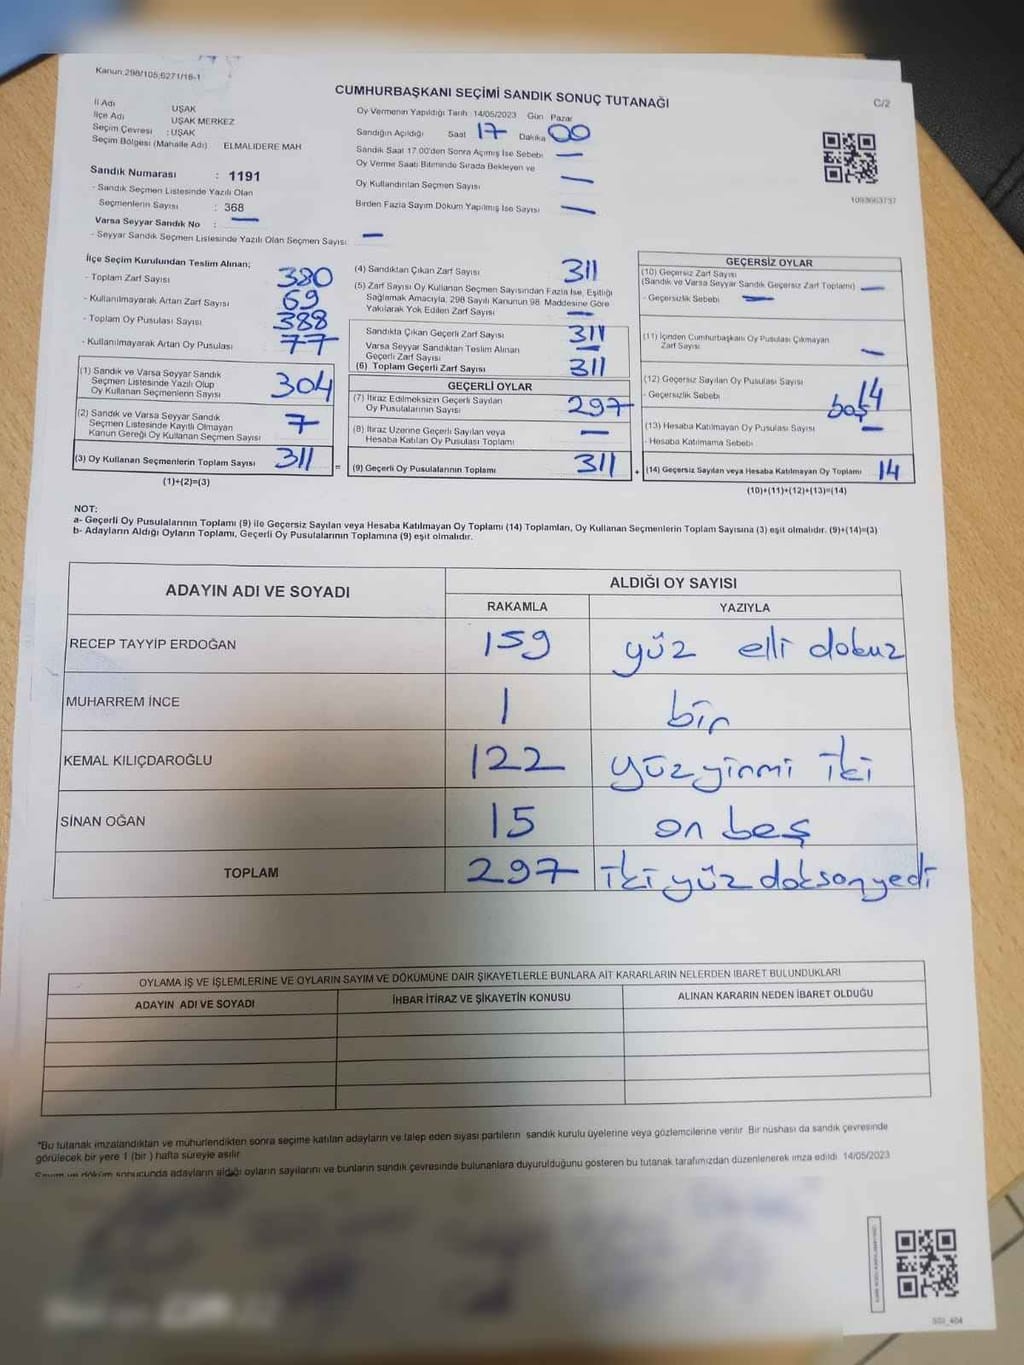 Kanun:298/105;6271/16-1
CUMHURBAŞKANI SEÇİMİ SANDIK SONUÇ TUTANAĞI
C/2
İl Adı UŞAK
İlçe Adı UŞAK MERKEZ
Seçim Çevresi : UŞAK
Seçim Bölgesi (Mahalle Adı) ELMALIDERE MAH
Sandık Numarası : 1191
- Sandık Seçmen Listesinde Yazılı Olan
Seçmenlerin Sayısı : 368
Varsa Seyyar Sandık No : —
- Seyyar Sandık Seçmen Listesinde Yazılı Olan Seçmen Sayısı: —
Oy Vermenin Yapıldığı Tarih 14/05/2023 Gün Pazar
Sandığın Açıldığı Saat 17 Dakika 00
Sandık Saat 17.00'den Sonra Açımış İse Sebebi —
Oy Verme Saati Bitiminde Sırada Bekleyen ve
Oy Kullandırılan Seçmen Sayısı —
Birden Fazla Sayım Döküm Yapılmış İse Sayısı —
1093663737
İlçe Seçim Kurulundan Teslim Alınan;
- Toplam Zarf Sayısı 380
- Kullanılmayarak Artan Zarf Sayısı 69
- Toplam Oy Pusulası Sayısı 388
- Kullanılmayarak Artan Oy Pusulası 77
(1) Sandık ve Varsa Seyyar Sandık
Seçmen Listesinde Yazılı Olup
Oy Kullanan Seçmenlerin Sayısı 304
(2) Sandık ve Varsa Seyyar Sandık
Seçmen Listesinde Kayıtlı Olmayan
Kanun Gereği Oy Kullanan Seçmen Sayısı 7
(3) Oy Kullanan Seçmenlerin Toplam Sayısı 311
(1)+(2)=(3)
=
(4) Sandıktan Çıkan Zarf Sayısı 311
(5) Zarf Sayısı Oy Kullanan Seçmen Sayısından Fazla İse, Eşitliği
Sağlamak Amacıyla, 298 Sayılı Kanunun 98. Maddesine Göre
Yakılarak Yok Edilen Zarf Sayısı —
Sandıkta Çıkan Geçerli Zarf Sayısı 311
Varsa Seyyar Sandıktan Teslim Alınan
Geçerli Zarf Sayısı —
(6) Toplam Geçerli Zarf Sayısı 311
GEÇERLİ OYLAR
(7) İtiraz Edilmeksizin Geçerli Sayılan
Oy Pusulalarının Sayısı 297
(8) İtiraz Üzerine Geçerli Sayılan veya
Hesaba Katılan Oy Pusulası Toplamı —
(9) Geçerli Oy Pusulalarının Toplamı 311
+
GEÇERSİZ OYLAR
(10) Geçersiz Zarf Sayısı
(Sandık ve Varsa Seyyar Sandık Geçersiz Zarf Toplamı) —
- Geçersizlik Sebebi —
(11) İçinden Cumhurbaşkanı Oy Pusulası Çıkmayan
Zarf Sayısı —
(12) Geçersiz Sayılan Oy Pusulası Sayısı 14
- Geçersizlik Sebebi boş
(13) Hesaba Katılmayan Oy Pusulası Sayısı —
- Hesaba Katılmama Sebebi
(14) Geçersiz Sayılan veya Hesaba Katılmayan Oy Toplamı 14
(10)+(11)+(12)+(13)=(14)
NOT:
a- Geçerli Oy Pusulalarının Toplamı (9) ile Geçersiz Sayılan veya Hesaba Katılmayan Oy Toplamı (14) Toplamları, Oy Kullanan Seçmenlerin Toplam Sayısına (3) eşit olmalıdır. (9)+(14)=(3)
b- Adayların Aldığı Oyların Toplamı, Geçerli Oy Pusulalarının Toplamına (9) eşit olmalıdır.
ADAYIN ADI VE SOYADI
ALDIĞI OY SAYISI
RAKAMLA YAZIYLA
RECEP TAYYİP ERDOĞAN 159 yüz elli dokuz
MUHARREM İNCE 1 bir
KEMAL KILIÇDAROĞLU 122 yüzyirmi iki
SİNAN OĞAN 15 on beş
TOPLAM 297 iki yüz doksan yedi
OYLAMA İŞ VE İŞLEMLERİNE VE OYLARIN SAYIM VE DÖKÜMÜNE DAİR ŞİKAYETLERLE BUNLARA AİT KARARLARIN NELERDEN İBARET BULUNDUKLARI
ADAYIN ADI VE SOYADI
İHBAR İTİRAZ VE ŞİKAYETİN KONUSU
ALINAN KARARIN NEDEN İBARET OLDUĞU
"Bu tutanak imzalandıktan ve mühürlendikten sonra seçime katılan adayların ve talep eden siyasi partilerin sandık kurulu üyelerine veya gözlemcilerine verilir Bir nüshası da sandık çevresinde
görülecek bir yere 1 (bir ) hafta süreyle asılır
Sayım ve döküm sonucunda adayların aldığı oyların sayılarını ve bunların sandık çevresinde bulunanlara duyurulduğunu gösteren bu tutanak tarafımızdan düzenlenerek imza edildi 14/05/2023